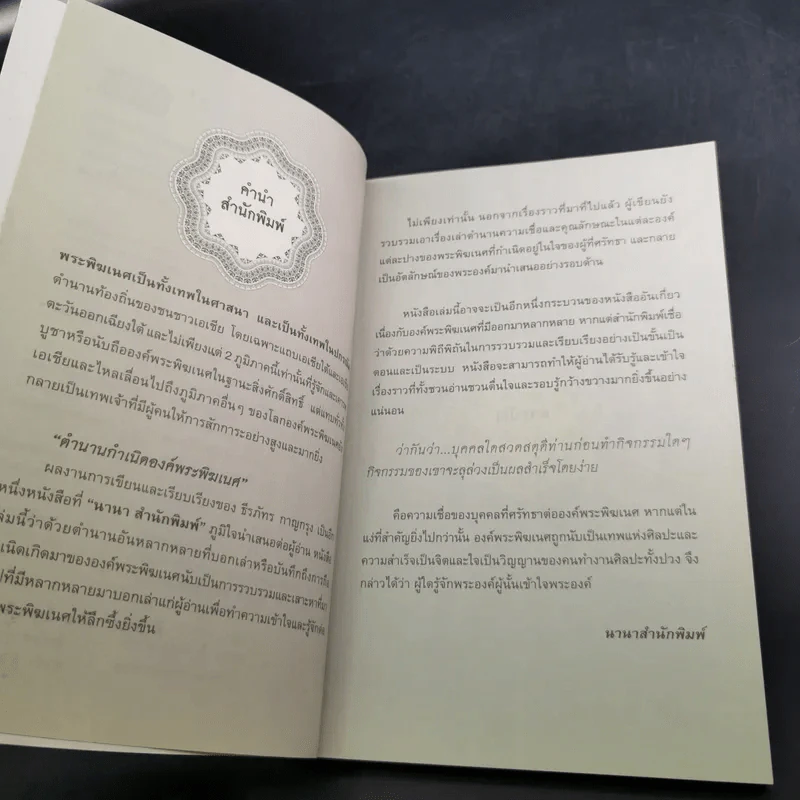 คำนำ
สำนักพิมพ์
พระพิฆเนศเป็นทั้งเทพในศาสนา และเป็นทั้งเทพใน
ตำนานท้องถิ่นของชนชาวเอเชีย โดยเฉพาะแถบเอเชียใต้และ
ตะวันออกเฉียงใต้ และไม่เพียงแต่ 2 ภูมิภาคนี้เท่านั้นที่รู้จักและ
บูชาหรือนับถือองค์พระพิฆเนศในฐานะสิ่งศักดิ์สิทธิ์ แต่แทบทั่ว
เอเชียและไหลเลื่อนไปถึงภูมิภาคอื่นๆ ของโลกองค์พระพิฆเนศ
กลายเป็นเทพเจ้าที่มีผู้คนให้การสักการะอย่างสูงและมากยิ่ง
"ตำนานกำเนิดองค์พระพิฆเนศ"
ผลงานการเขียนและเรียบเรียงของ ธีรภัทร กาญกรุง เป็นอีก
หนึ่งหนังสือที่ "นานา สำนักพิมพ์" ภูมิใจนำเสนอต่อผู้อ่าน หนังสือ
เล่มนี้ว่าด้วยตำนานอันหลากหลายที่บอกเล่าหรือบันทึกถึงการถือ
เกิดมาขององค์พระพิฆเนศนับเป็นการรวบรวมและเสาะหาที่มา
ที่มีหลากหลายมาบอกเล่าแก่ผู้อ่านเพื่อทำความเข้าใจและรู้จักต่อ
พระพิฆเนศให้ลึกซึ้งยิ่งขึ้น
ไม่เพียงเท่านั้น นอกจากเรื่องราวที่มาที่ไปแล้ว ผู้เขียนยัง
รวบรวมเอาเรื่องเล่าตำนานความเชื่อและคุณลักษณะในแต่ละองค์
แต่ละปางของพระพิฆเนศที่กำเนิดอยู่ในใจของผู้ที่ศรัทธา และกลาย
เป็นอัตลักษณ์ของพระองค์มานำเสนออย่างรอบด้าน
หนังสือเล่มนี้อาจจะเป็นอีกหนึ่งกระบวนของหนังสืออันเกี่ยว
เนื่องกับองค์พระพิฆเนศที่มีออกมาหลากหลาย หากแต่สำนักพิมพ์เชื่อ
ว่าด้วยความพิถีพิถันในการรวบรวมและเรียบเรียงอย่างเป็นขั้นเป็น
ตอนและเป็นระบบ หนังสือจะสามารถทำให้ผู้อ่านได้รับรู้และเข้าใจ
เรื่องราวที่ทั้งชวนอ่านชวนตื่นใจและรอบรู้กว้างขวางมากยิ่งขึ้นอย่าง
แน่นอน
ว่ากันว่า...บุคคลใดสวดสดุดีท่านก่อนทำกิจกรรมใดๆ
กิจกรรมของเขาจะลุล่วงเป็นผลสำเร็จโดยง่าย
คือความเชื่อของบุคคลที่ศรัทธาต่อองค์พระพิฆเนศ หากแต่ใน
แง่ที่สำคัญยิ่งไปกว่านั้น องค์พระพิฆเนศถูกนับเป็นเทพแห่งศิลปะและ
ความสำเร็จเป็นจิตและใจเป็นวิญญาณของคนทำงานศิลปะทั้งปวง จึง
กล่าวได้ว่า ผู้ใดรู้จักพระองค์ผู้นั้นเข้าใจพระองค์
นานาสำนักพิมพ์